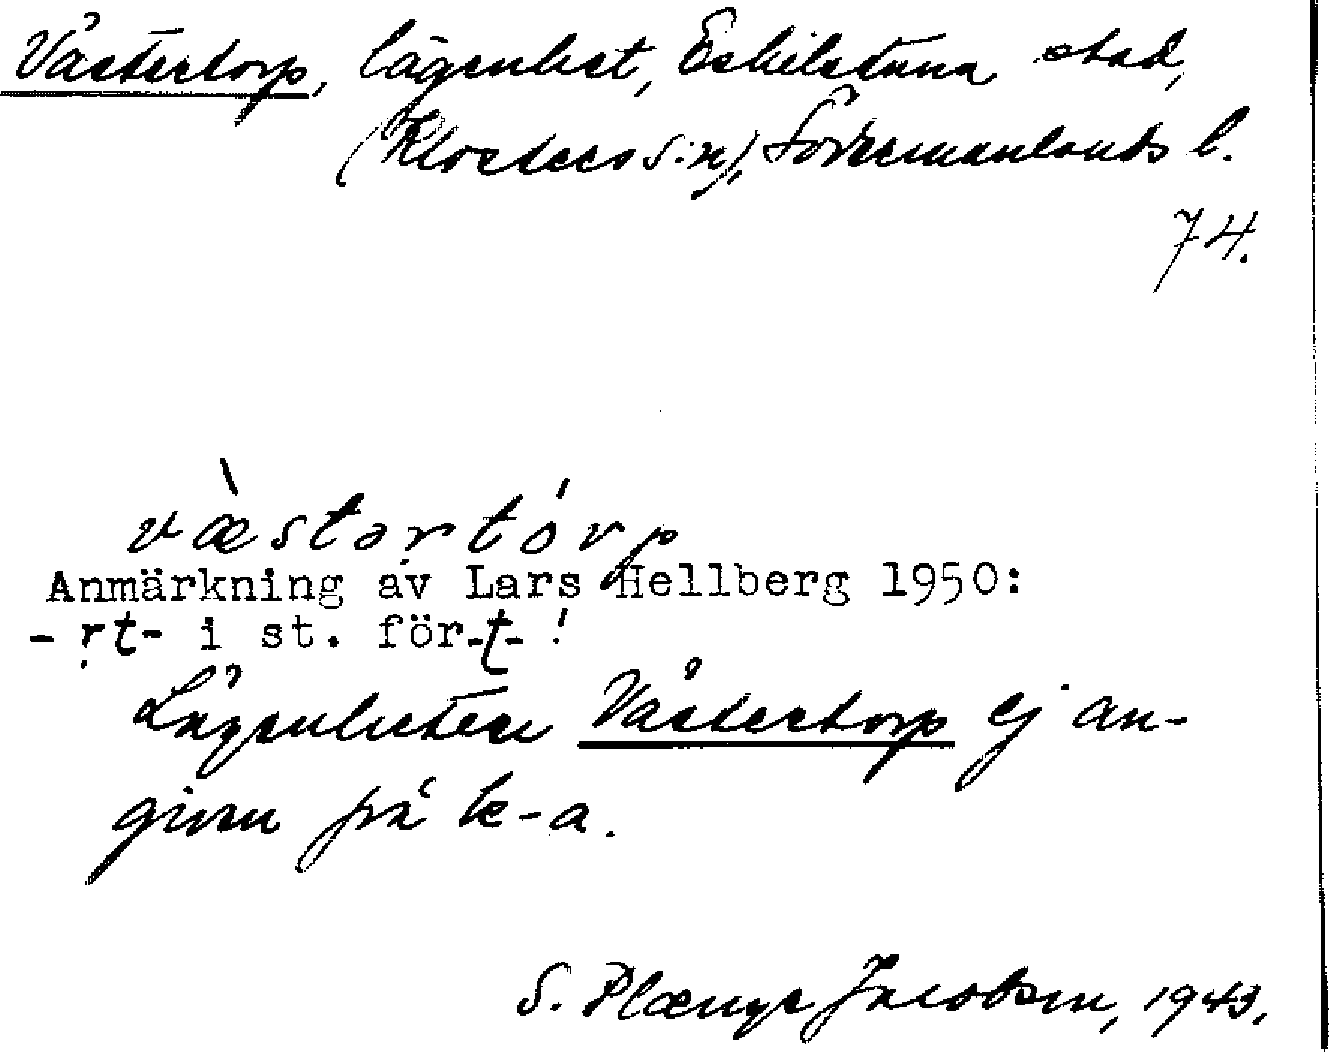 Västertorp, lägenhet, Eskilstuna stad,
(Klosters s:n), Södermanlands l.
74.
væ̀stərtórp
Anmärkning av Lars Hellberg 1950:
- ṛt- i st. för -t- !
Lägenheten Västertorp ej an-
given på k-a.
S. Plænge Jacobsen, 1943.